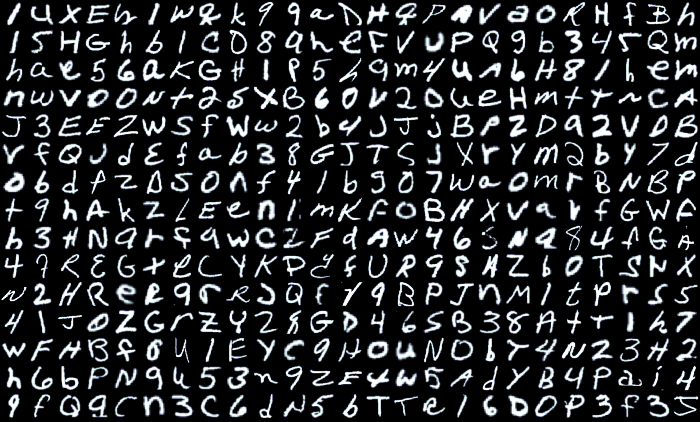 1 U X E h 1 W & k 9 9 a D H & P A V a O R H f B h
1 5 H G h b 1 C D 8 q h e F V U P Q 9 b 3 4 5 Q m
h a e 5 6 a K G H 1 P 5 h 9 m 4 U A 6 H 8 1 h e m
n w v O O N t 2 5 X B 6 0 V 2 D U e H m t r n C A
J 3 E E Z W S f W w 2 b 4 J J j B P Z D 9 2 V D E
r f Q J d E f a b 3 8 G J T S J X r Y m 2 b Y 7 d
0 6 d f Z D S O n f 4 1 b 9 0 7 W a O m r B N B P
t 9 h A k Z L E e n 1 m K F O B H X V a r f G W F
h 3 H N 9 r f 9 w C Z F d A W 4 6 S N 9 8 4 f G A
4 7 R E G t e C Y K P E f U R 9 S A Z b O T S N X
N 2 H R e R 9 r R J Q F Y 9 B P J n M 1 t P r S 5
4 1 J 0 Z G r Z Y 2 8 G D 4 6 S B 3 8 A t t 1 h 7
W F H B f 8 U 1 E Y C 9 H O U N O b Y 4 N 2 3 H 2
h 6 b P N 9 U 5 3 n 9 Z E 4 W 5 A d Y B 4 P a i 4
9 f Q 9 C n 3 C 6 d N 5 b T T R 1 6 D O P 3 f 3 5